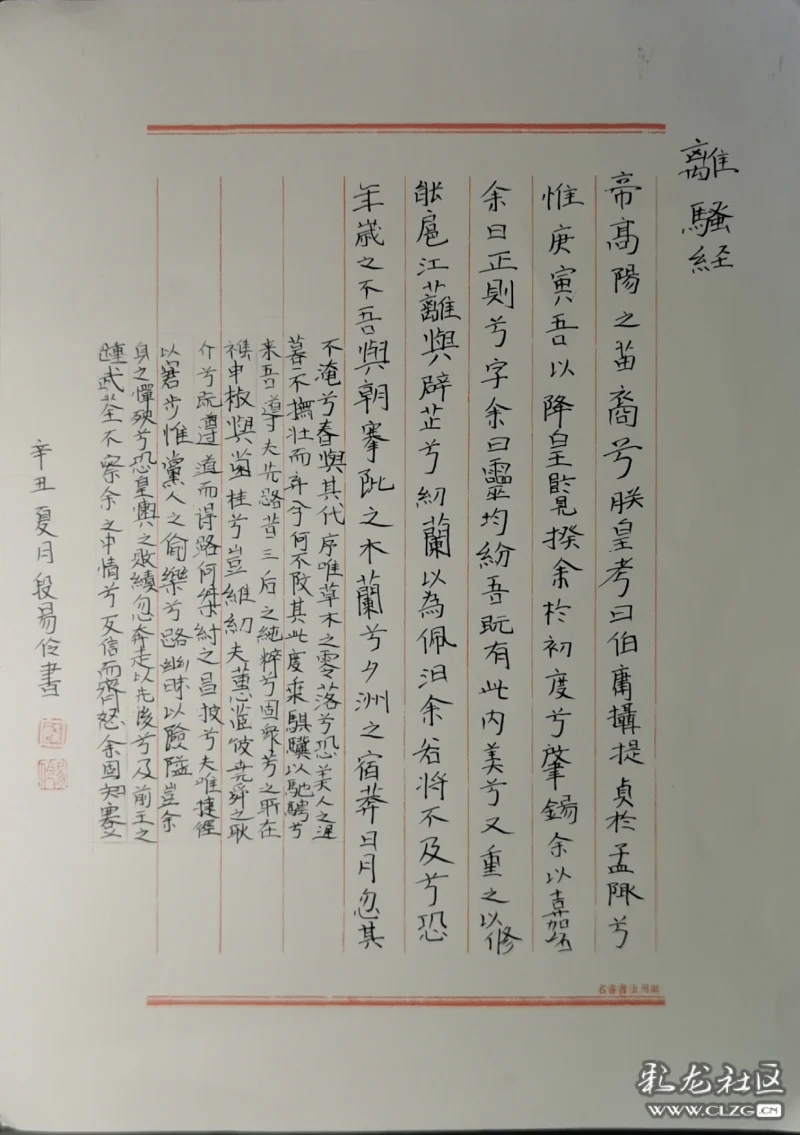 離騷経
帝髙陽之苗裔兮朕皇考曰伯庸攝提貞於孟陬兮
惟庚寅吾以降皇覽揆余於初度兮肇錫余以嘉
余曰正則兮字余曰靈均紛吾既有此内美兮又重之以修
能扈江蘺與辟芷兮紉蘭以為佩汩余若將不及兮恐
年歳之不吾與朝搴阰之木蘭兮夕洲之宿莽日月忽其
不淹兮春與其代序唯草木之零落兮恐美人之遅
暮不撫壯而弃兮何不改其此度乘騏驥以馳騁兮
来吾導夫先路昔三后之純粹兮固衆兮之所在
雜申椒與菌桂兮豈維紉夫蕙茝彼堯舜之耿
介兮既遵道而得路何桀紂之昌披兮夫唯捷徑
以窘步惟黨人之偷樂兮路幽昧以險隘豈余
身之憚殃兮恐皇輿之敗績忽奔走以先後兮及前王之
踵武荃不察余之中情兮反信而齌怒余固知謇之
辛丑夏月段易伶書
彩龙社区
WWW.CLZG.CN